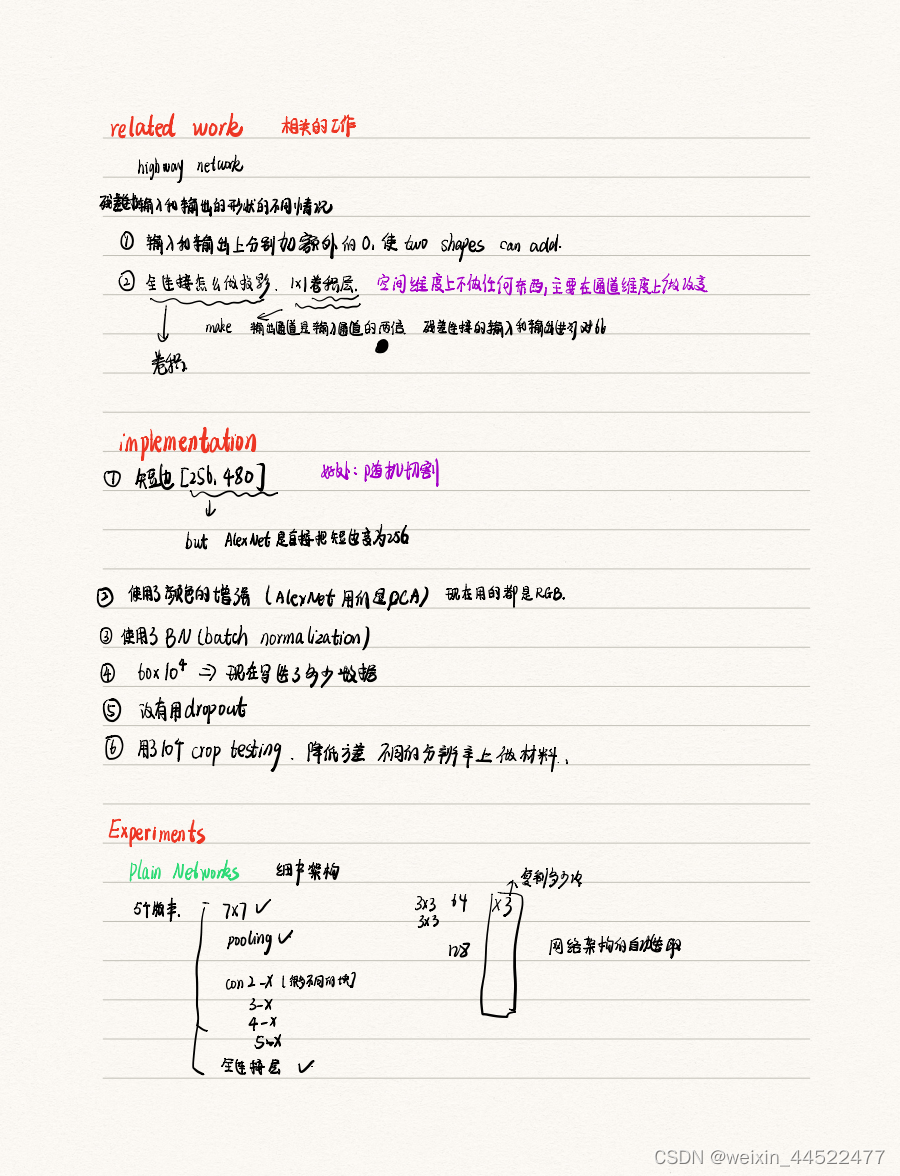 related work 相关的工作
highway network
残差连接输入和输出的形状的不同情况
① 输入和输出上分别加额外的0,使 two shapes can add.
② 全连接怎么做投影. 1x1卷积层. 空间维度上不做任何东西,主要在通道维度上做改变
make 输出通道是输入通道的两倍 残差连接的输入和输出进行对比
卷积
implementation
① 短边 [256, 480] 好处: 随机切割
but AlexNet是直接把短边变为256
② 使用了颜色的增强 (AlexNet 用的是PCA) 现在用的都是RGB.
③ 使用了BN (batch normalization)
④ 60x10⁴ ⇒ 现在写迭了多少数据
⑤ 没有用dropout
⑥ 用了10个crop testing. 降低方差 不同的分辨率上做材料.
Experiments
Plain Networks 细节架构
5个版本. 7x7 ✓ 3x3 64 x3 复制多少次
3x3
pooling ✓ 128 网络架构的
con2-x (很多不同的块)
3-x
4-x
5-x
全连接层 ✓
CSDN @weixin_44522477